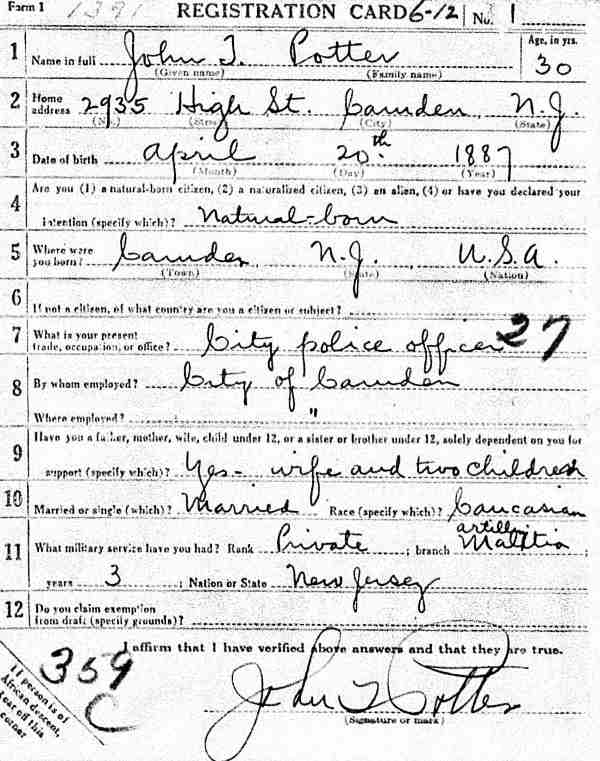 Form 1 1391 REGISTRATION CARD 6-12 No. 1
1 Name in full John T. Potter Age, in yrs. 30
(Given name) (Family name)
2 Home address 2935 High St. Camden, N.J.
(No.) (Street) (City) (State)
3 Date of birth April 20th 1887
(Month) (Day) (Year)
4 Are you (1) a natural-born citizen, (2) a naturalized citizen, (3) an alien, (4) or have you declared your
intention (specify which)? Natural-born
5 Where were you born? Camden, N.J. U.S.A.
(Town) (State) (Nation)
6 If not a citizen, of what country are you a citizen or subject?
7 What is your present trade, occupation, or office? City police officer 27
8 By whom employed? City of Camden
Where employed? "
9 Have you a father, mother, wife, child under 12, or a sister or brother under 12, solely dependent on you for
support (specify which)? Yes - wife and two children
10 Married or single (which)? Married Race (specify which)? Caucasian
artillery
11 What military service have you had? Rank Private ; branch Malitia ;
years 3 ; Nation or State New Jersey
12 Do you claim exemption from draft (specify grounds)?
I affirm that I have verified above answers and that they are true.
359
C
John T Potter
(Signature or mark)
If person is of
African descent,
tear off this
corner